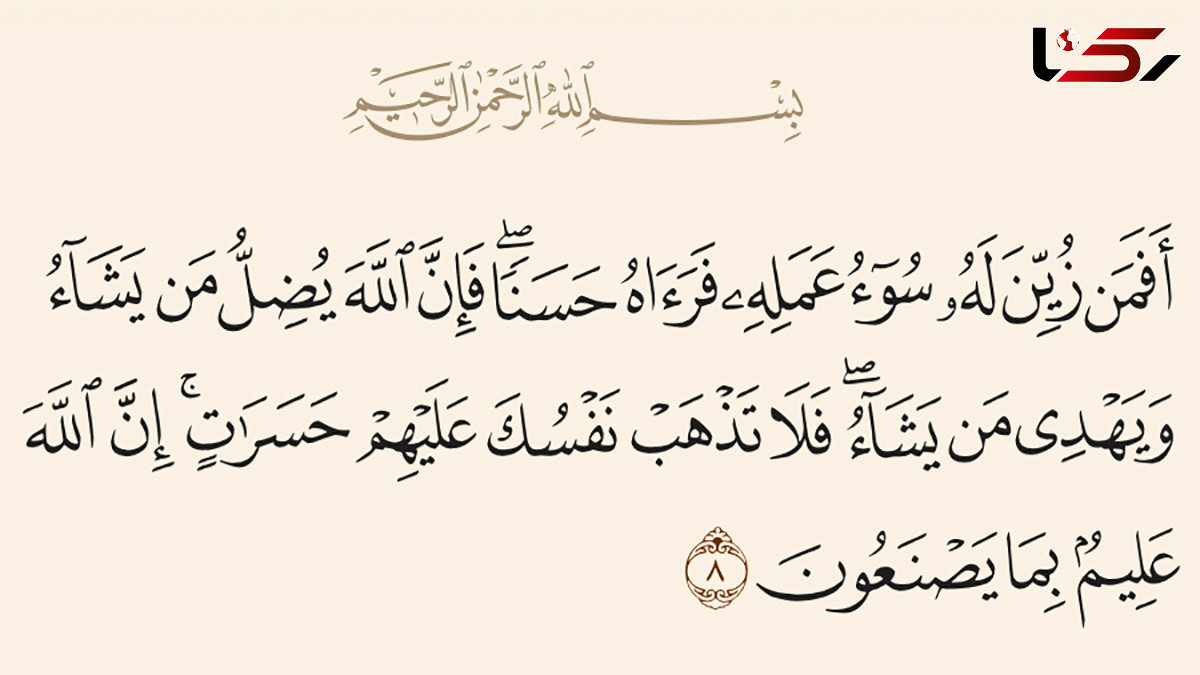 رکنا
بِسْمِ ٱللَّهِ ٱلرَّحْمَٰنِ ٱلرَّحِيمِ
أَفَمَن زُيِّنَ لَهُۥ سُوٓءُ عَمَلِهِۦ فَرَءَاهُ حَسَنًۭاۖ فَإِنَّ ٱللَّهَ يُضِلُّ مَن يَشَآءُ
وَيَهْدِى مَن يَشَآءُۖ فَلَا تَذْهَبْ نَفْسُكَ عَلَيْهِمْ حَسَرَٰتٍۚ إِنَّ ٱللَّهَ
عَلِيمٌۢ بِمَا يَصْنَعُونَ ٨